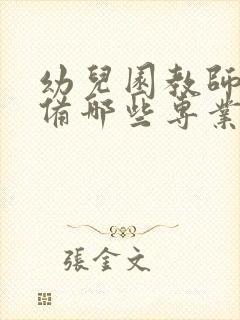 幼兒園教師
備哪些專業
張金文